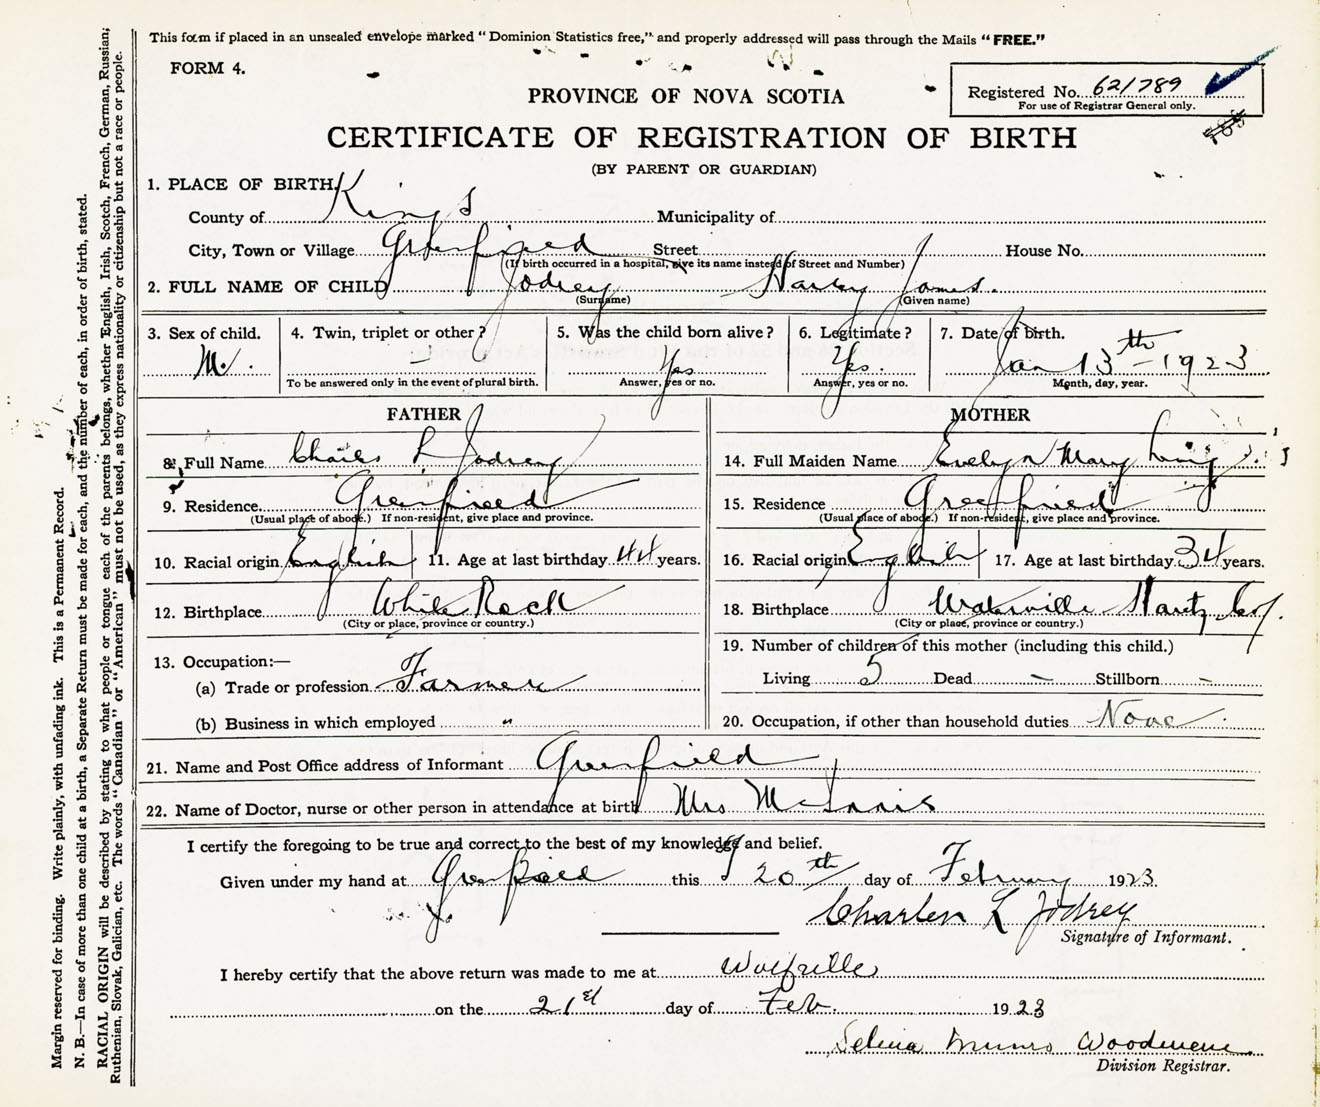 This form if placed in an unsealed envelope marked “ Dominion Statistics free,” and properly addressed will pass through the Mails “ FREE.”
FORM 4.
Registered No. 621789
For use of Registrar General only.
789
PROVINCE OF NOVA SCOTIA
CERTIFICATE OF REGISTRATION OF BIRTH
(BY PARENT OR GUARDIAN)
1. PLACE OF BIRTH.
County of Kings Municipality of
City, Town or Village Greenfield Street House No.
(If birth occurred in a hospital, give its name instead of Street and Number)
2. FULL NAME OF CHILD Jodrey Harley James.
(Surname) (Given name)
3. Sex of child. 4. Twin, triplet or other? 5. Was the child born alive? 6. Legitimate? 7. Date of birth.
M. — Yes Yes. Jan 13th – 1923
To be answered only in the event of plural birth. Answer, yes or no. Answer, yes or no. Month, day, year.
FATHER MOTHER
8. Full Name Charles L Jodrey 14. Full Maiden Name Evelyn Mary
9. Residence. Greenfield 15. Residence Greenfield
(Usual place of abode.) If non-resident, give place and province. (Usual place of abode.) If non-resident, give place and province.
10. Racial origin English 11. Age at last birthday 44 years. 16. Racial origin English 17. Age at last birthday 34 years.
12. Birthplace White Rock 18. Birthplace Waterville Hants Co.
(City or place, province or country.) (City or place, province or country.)
13. Occupation:— 19. Number of children of this mother (including this child.)
(a) Trade or profession Farmer Living 5 Dead – Stillborn –
(b) Business in which employed " 20. Occupation, if other than household duties None
21. Name and Post Office address of Informant Greenfield
22. Name of Doctor, nurse or other person in attendance at birth Mrs McInnis
I certify the foregoing to be true and correct to the best of my knowledge and belief.
Given under my hand at Greenfield this 20th day of February 1923.
Charles L Jodrey
Signature of Informant.
I hereby certify that the above return was made to me at Wolfville
on the 21st day of Feb. 1923
Selina Munro
Division Registrar.
Margin reserved for binding. Write plainly, with unfading ink. This is a Permanent Record.
N. B.—In case of more than one child at a birth, a Separate Return must be made for each, and the number of each, in order of birth, stated.
RACIAL ORIGIN will be described by stating to what people or tongue each of the parents belongs, whether English, Irish, Scotch, French, German, Russian;
Ruthenian, Slovak, Galician, etc. The words “ Canadian ” or “ American ” must not be used, as they express nationality or citizenship but not a race or people.